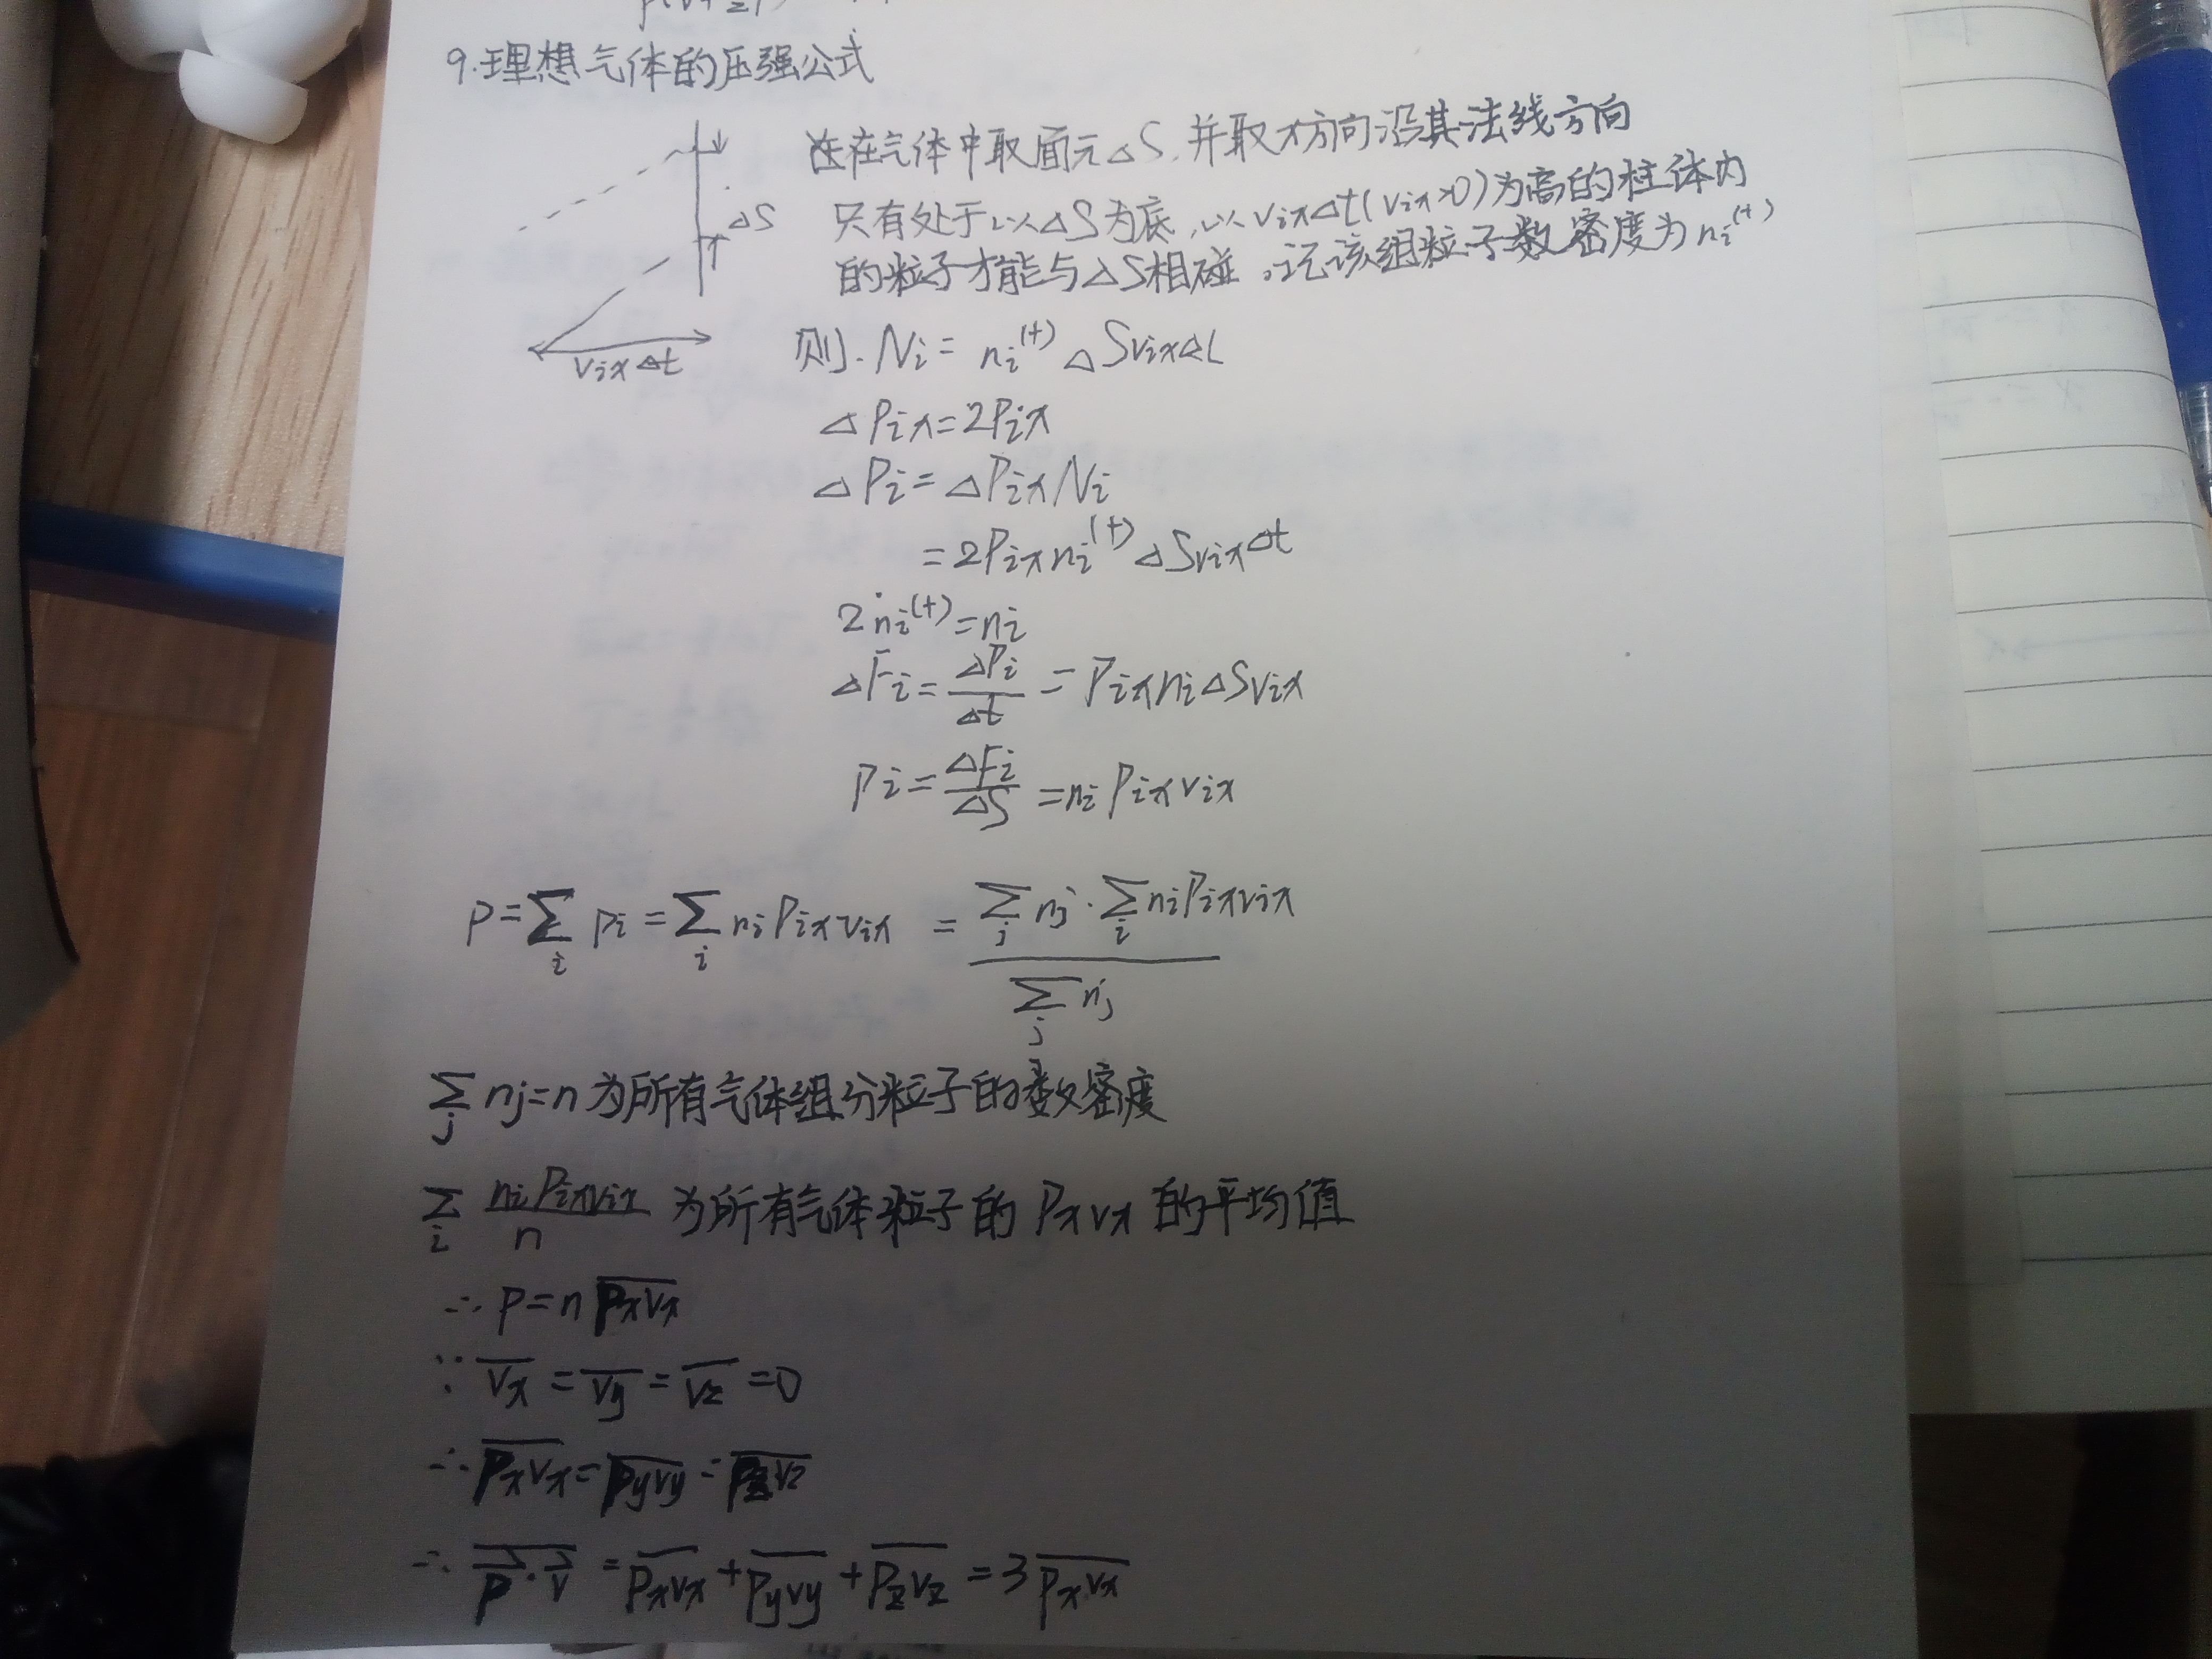 9.理想气体的压强公式
在气体中取面元△S,并取x方向沿其法线方向
只有处于以△S为底,以vix△t(vix>0)为高的柱体内
的粒子才能与△S相碰,记该组粒子数密度为ni(+)
△S
vix△t
则.Ni=ni(+)△Svix△t
△Pix=2Pix
△Pi=△PixNi
=2Pixni(+)△Svix△t
2ni(+)=ni
△Fi=△Pi/△t=Pixni△Svix
Pi=△Fi/△S=niPixvix
P=∑i Pi=∑i niPixvix=∑j nj·∑i niPixvix/∑j nj
∑j nj=n为所有气体组分粒子的数密度
∑i niPixvix/n 为所有气体粒子的Pxvx的平均值
∴P=n P̅x̅v̅x̅
∵v̅x̅=v̅y̅=v̅z̅=0
∴P̅x̅v̅x̅=P̅y̅v̅y̅=P̅z̅v̅z̅
∴P⃗·v⃗‾=P̅x̅v̅x̅+P̅y̅v̅y̅+P̅z̅v̅z̅=3P̅x̅v̅x̅